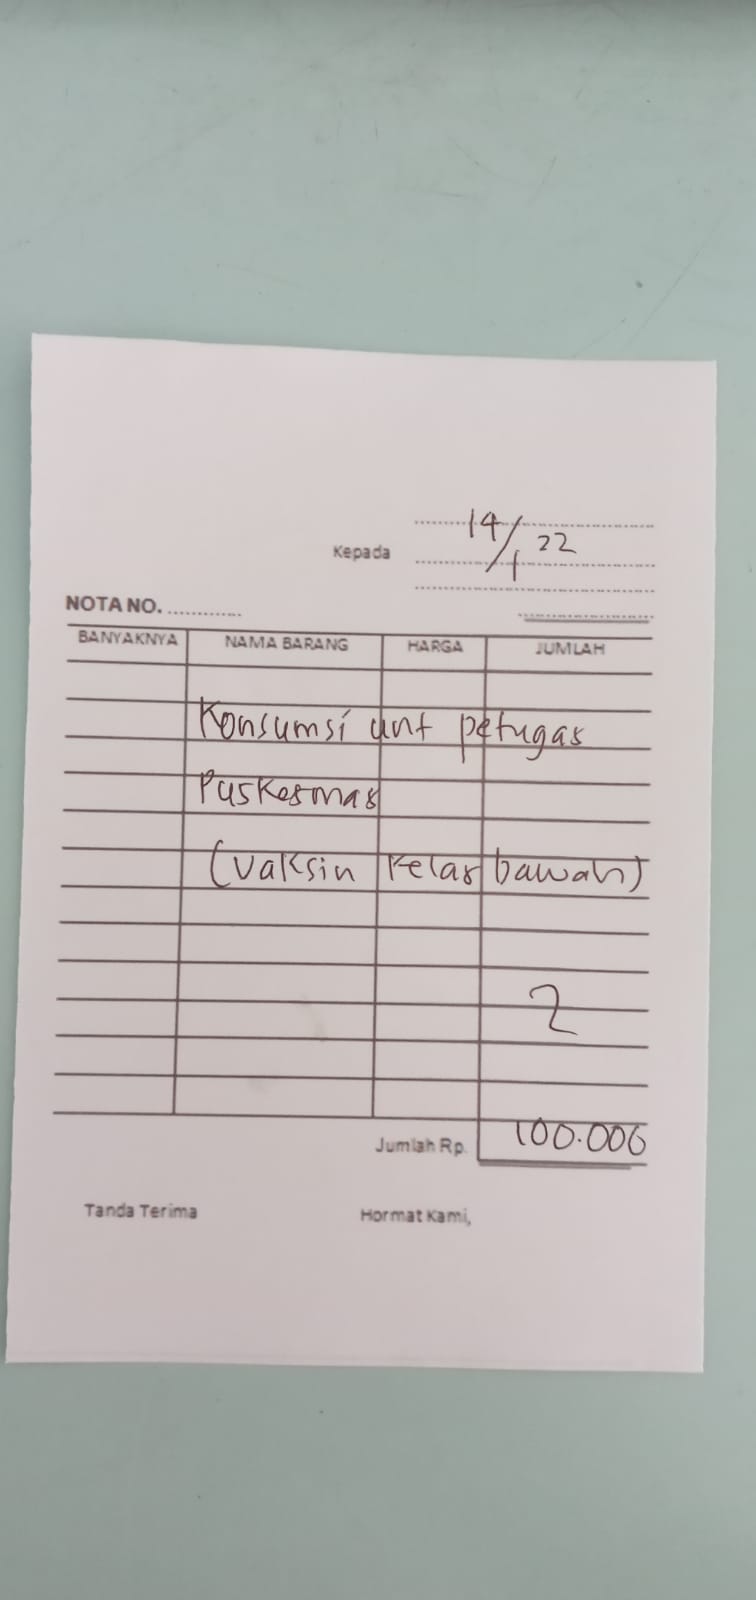 14/1 22
Kepada
NOTA NO. ............
BANYAKNYA NAMA BARANG HARGA JUMLAH
Konsumsi unt petugas
Puskesmas
(Vaksin kelas bawah)
2
Jumlah Rp. 100.000
Tanda Terima Hormat Kami,